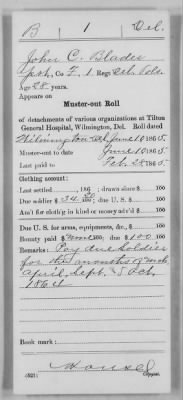 B | 1 | Del.
John C. Blades
Pvt., Co. F, 1 Reg't Del. Vols.
Age 28 years.
Appears on
Muster-out Roll
of detachments of various organizations at Tilton
General Hospital, Wilmington, Del. Roll dated
Wilmington Del June 10, 1865.
Muster-out to date June 10, 1865.
Last paid to Feb. 28, 1865.
Clothing account:
Last settled, 186 ; drawn since $ 100
Due soldier $ 34 100; due U. S. $ 100
Am't for cloth'g in kind or money adv'd $ 100
Due U. S. for arms, equipments, &c., $ 100
Bounty paid $ none 100; due $ 100 100
Remarks: Pay due soldier
for the months of Mch
April, Sept. & Oct.
1864
Book mark:
Housel
(521) Copyist.